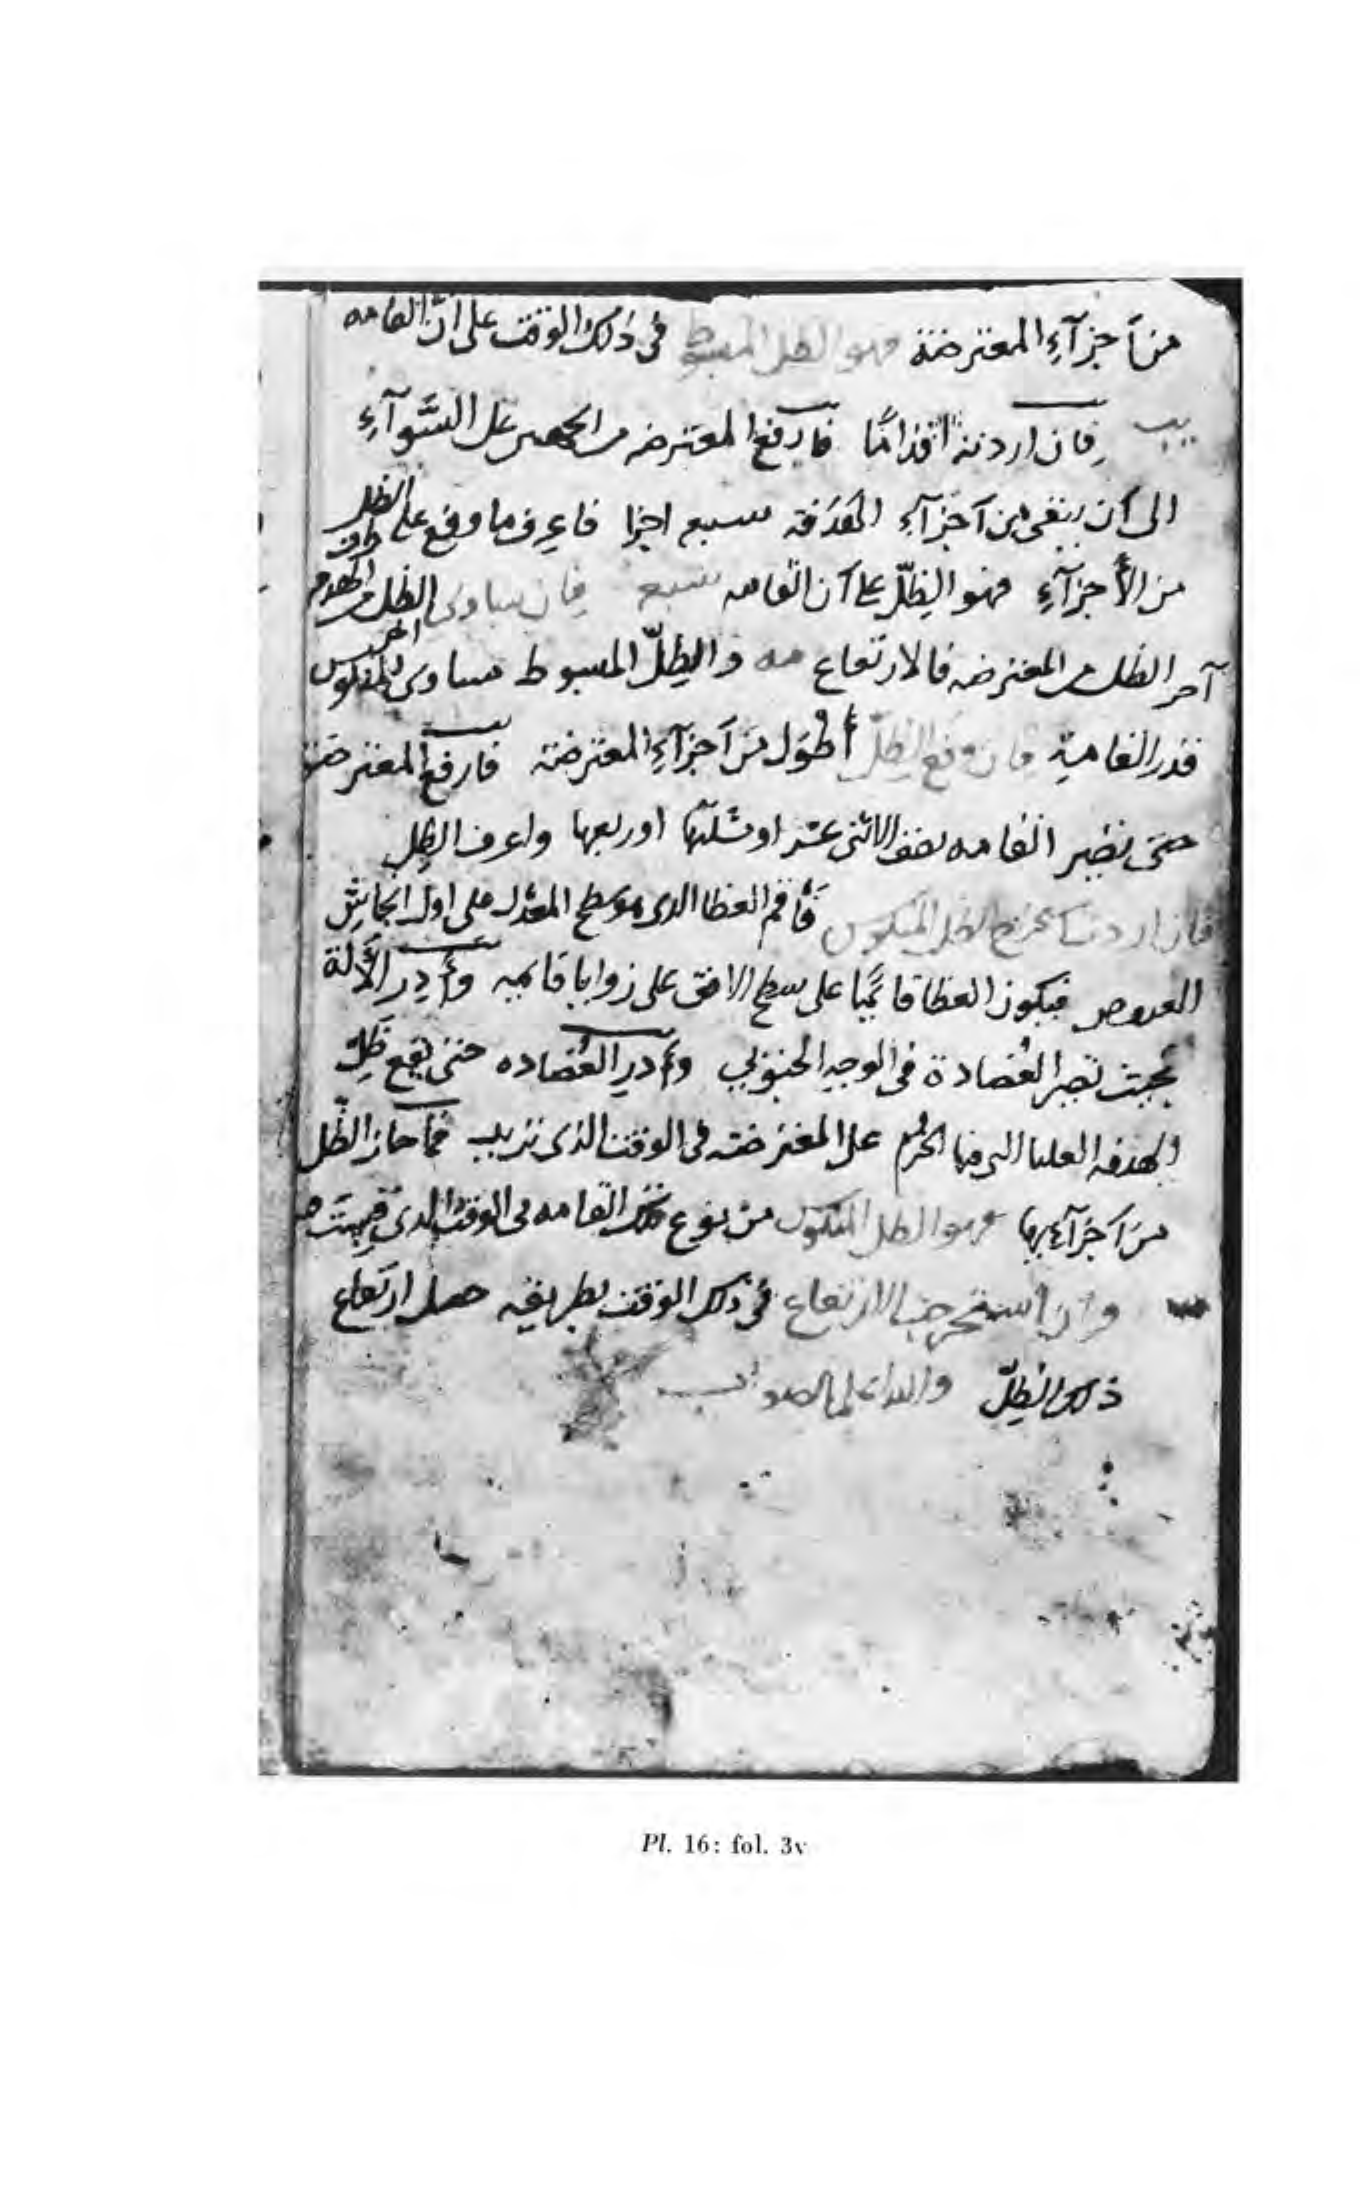 من أجزآءِ المعترضة فهو الظل المبسوط في ذلك الوقت على ان القامه
يب فان اردته أقدامًا فارفع المعترضه من الجهتين على السَّوآءِ
الى أن يبقى من أجزآءِ الهَدَفة سبعه اجزا فاعرف ما وقع عليه الظل
من الأجزآءِ فهو الظِلّ على أن القامه سبعه فان ساوى الظل من الهدفه
آخر الظل من المعترضه فالارتفاع مه والظِلّ المبسوط يساوى المنكوس
قدر القامة فان وقع الظِلّ أطْوَل من أجزآءِ المعترضة فارفع المعترضة
حتى تصير القامه نصف الاثنى عشر او ثلثها او ربعها واعرف الظل
فان اردت تخريج الظل المنكوس فأقم الغطا الذى هو سطح المعدل على اول
العروض فيكون الغطا قائمًا على سطح الافق على زوايا قايمه وأدِر الألة
بحيث تصير العُضادة في الوجه الجنوبي وأدر العُضاده حتى يقع ظِلّ
الهدفه العليا التى فيها الخُرم على المعترضه فى الوقت الذى تريد فما حاز الظّل
من أجزآئها فهو الظل المنكوس من نوع تلك القامه فى الوقت الذى
وان استخرجت الارتفاع في ذلك الوقت بطريقه حصل ارتفاع
ذلك الظِلّ والله اعلم بالصواب
Pl. 16: fol. 3v